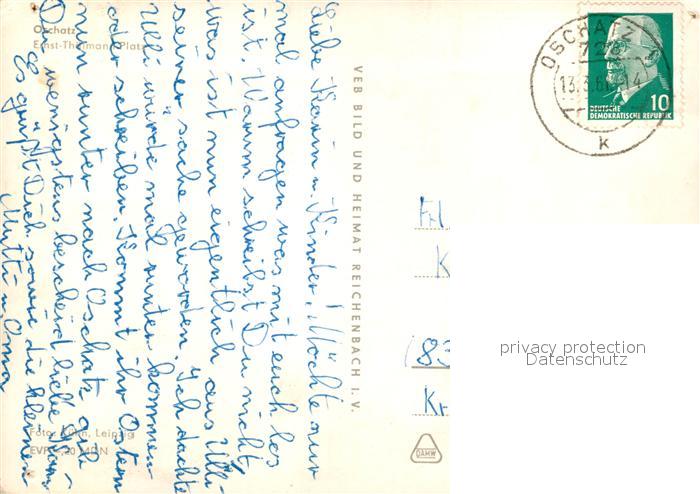 Oschatz
Ernst-Thälmann-Platz
Liebe Karin u. Kinder! Möchte nur
mal anfragen was mit euch los
ist. Warum schreibst Du nicht,
was ist nun eigentlich aus Ulli-
seiner sache geworden. Ich dachte
Ulli würde mal runter kommen
oder schreiben. Kommt ihr Ostern
nun runter nach Oschatz, gib
Du wenigstens bescheid liebe
Es grüßt Dich sowie die kleinen
Mutti u. Oma
Foto: Kühn, Leipzig
EVP -,20 MDN
VEB BILD UND HEIMAT REICHENBACH I. V.
DAMW
OSCHATZ
DEUTSCHE
DEMOKRATISCHE REPUBLIK
10
k
Frl
K
(83
Kr
privacy protection
Datenschutz